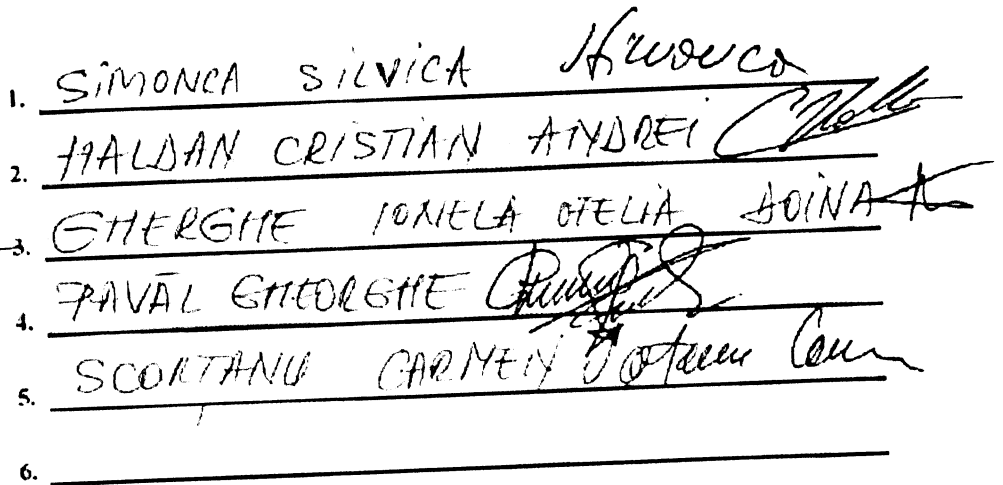 1. SIMONCA SILVICA
2. HALDAN CRISTIAN ANDREI
3. GHERGHE IONELA OTELIA ADINA
4. PAVĂL GHEORGHE
5. SCORȚANU CARMEN
6.